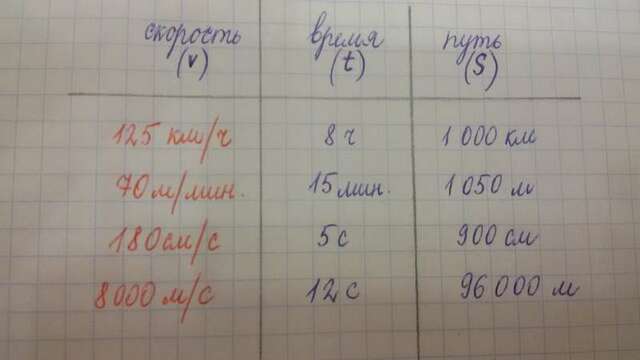 скорость время путь
(v) (t) (S)
125 км/ч 8 ч 1 000 км
70 м/мин. 15 мин. 1 050 м
180 см/с 5 с 900 см
8 000 м/с 12 с 96 000 м